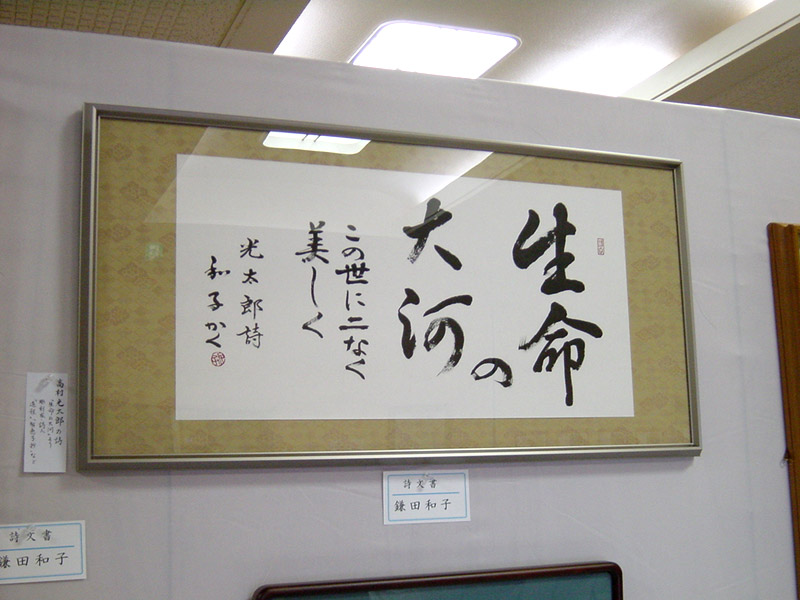 生命の
大河
この世に二なく
美しく
光太郎詩
和子かく
高村光太郎の詩
詩文書
鎌田和子
詩文書
鎌田和子